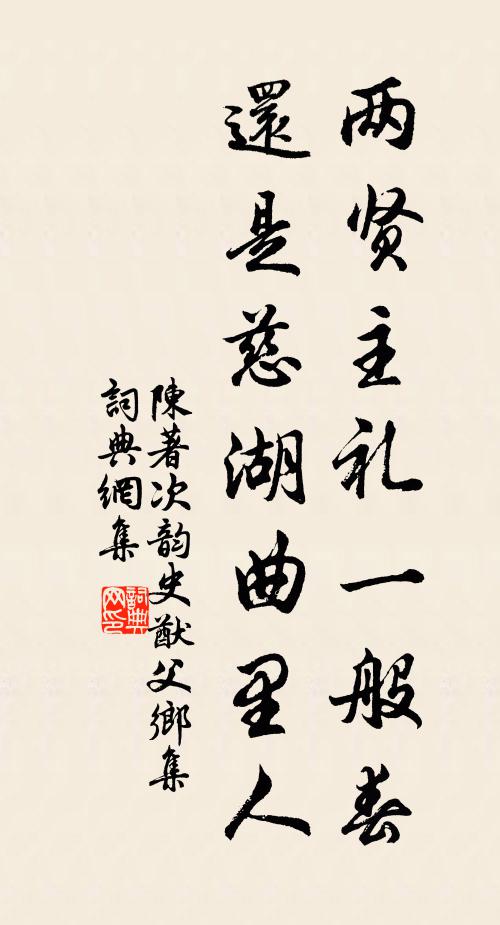 两贤主礼一般春
還是慈湖曲里人
陳著次韵史猷父鄉集
詞典網集
詞典
网印